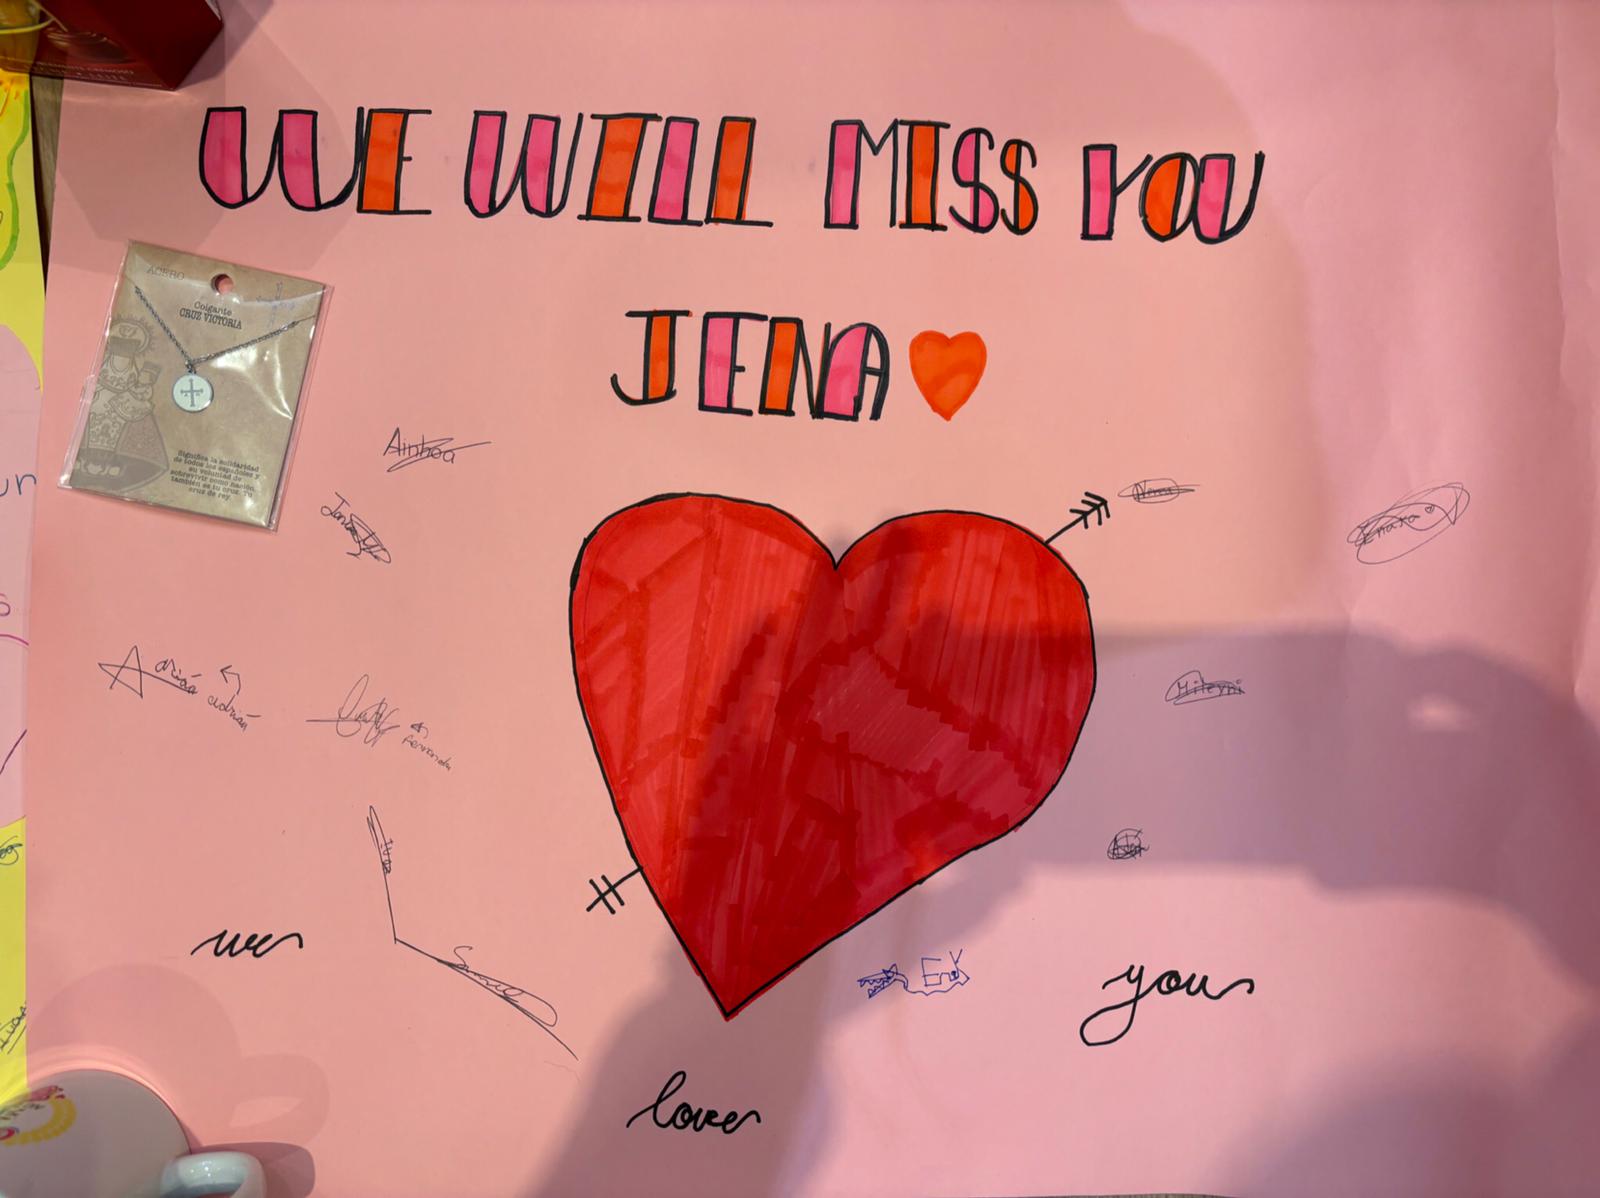 WE WILL MISS YOU
JENA
ACERO
Colgante
CRUZ VICTORIA
Significa la solidaridad
de todos los españoles y
su voluntad de
sobrevivir como nación.
también es tu cruz. Tu
cruz de rey.
Ainhoa
Adrián
adrián
Fernanda
Mileyni
Samuel
Erik
we
love
you